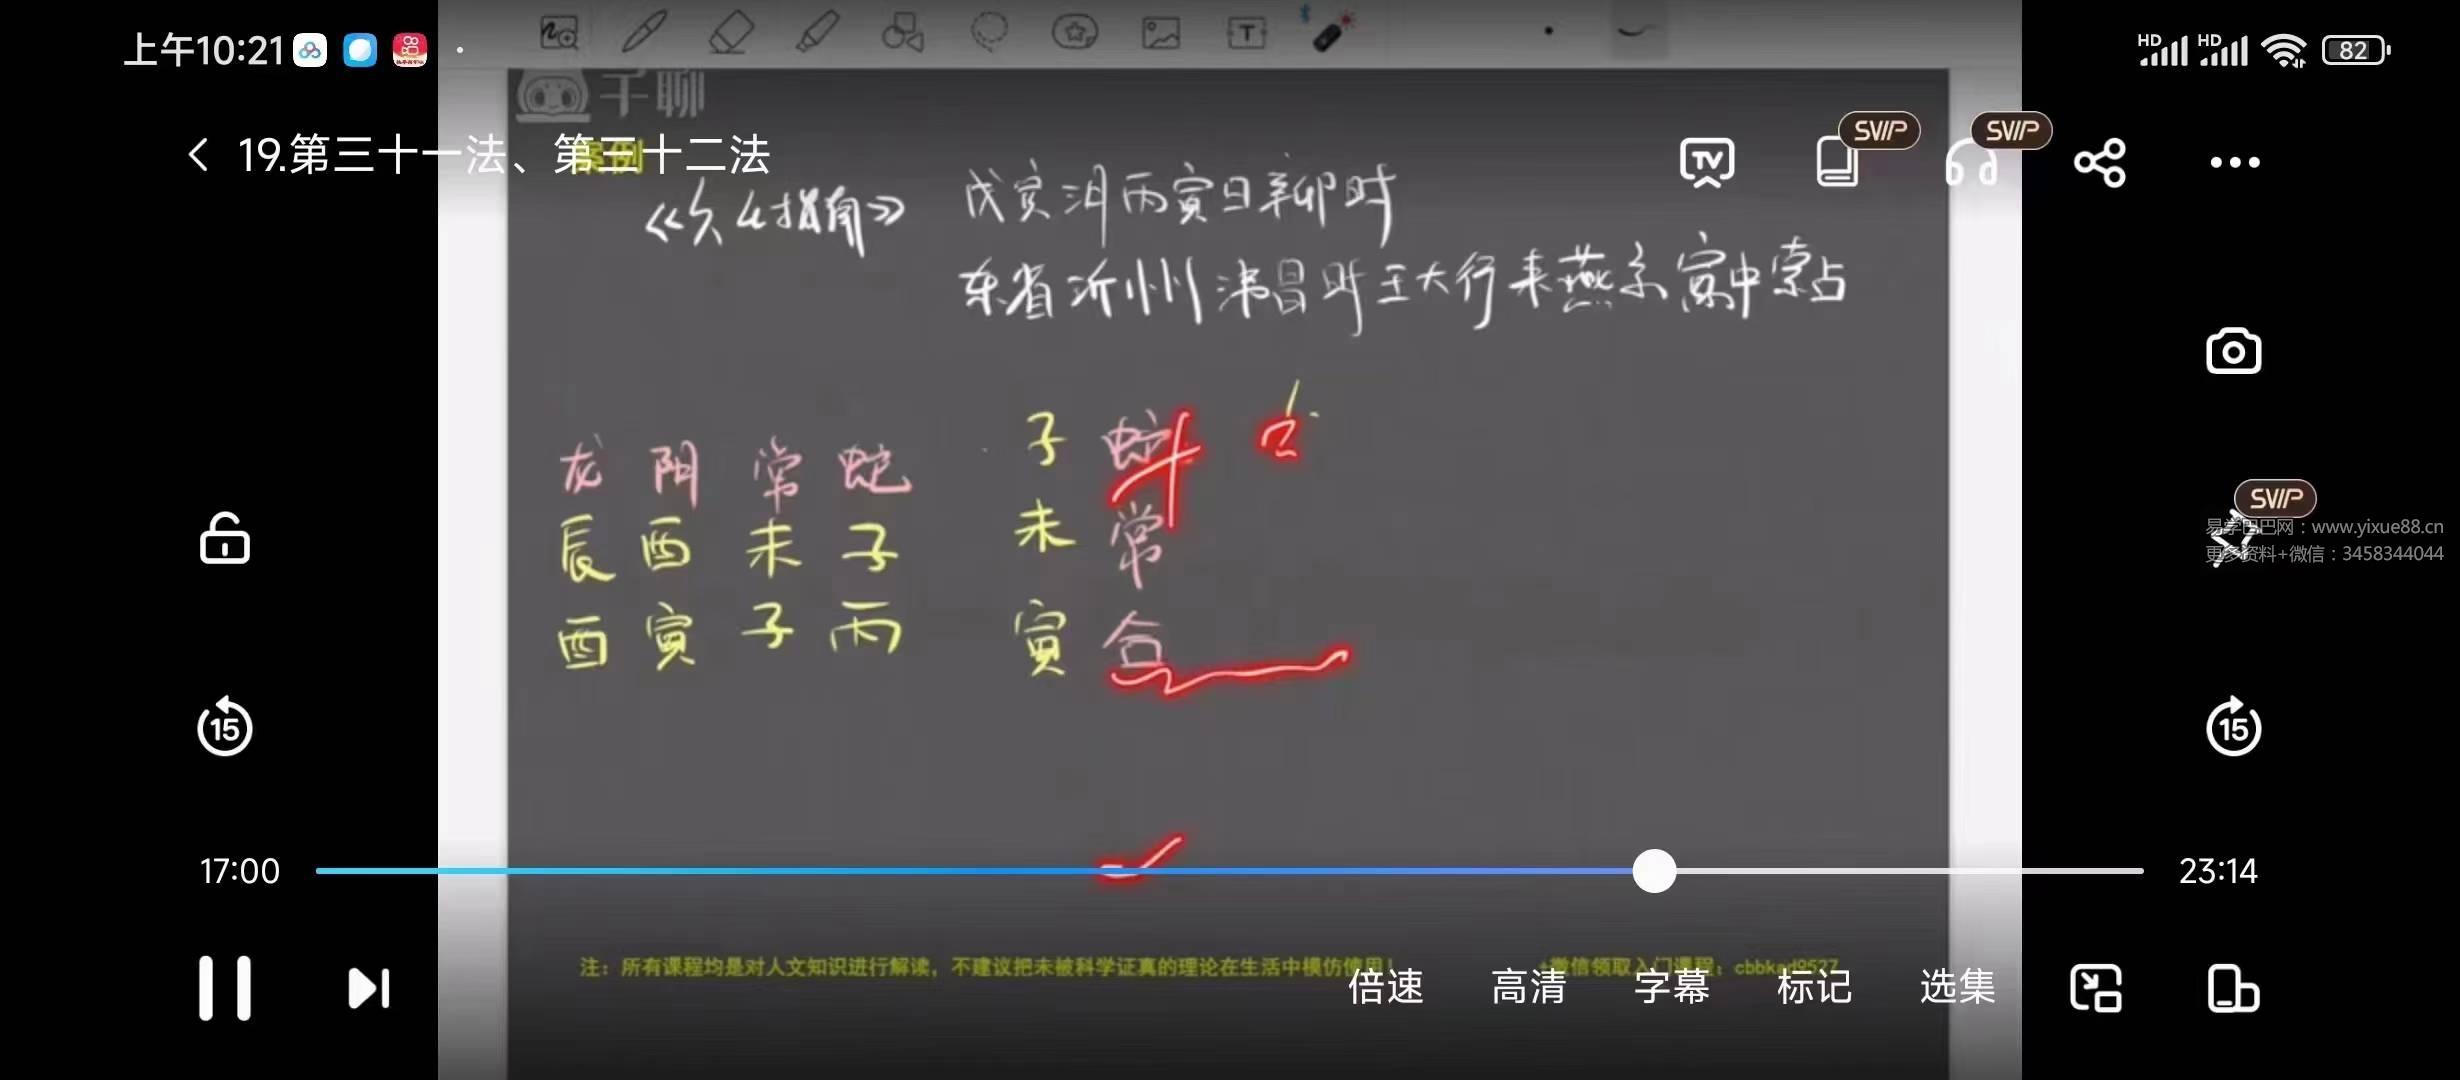 上午10:21
HD HD 82
千聊
19.第三十一法、第三十二法
案例
SVIP
SVIP
TV
《六壬指南》 戊寅 月丙寅日辛卯时
东省沂州 昌时王大行来燕京寅中索占
龙 阴 常 蛇
辰 酉 未 子
酉 寅 子 丙
子 蛇
未 常
寅 合
占
SVIP
易学巴巴网：www.yixue88.cn
更多资料+微信：3458344044
15
15
17:00
23:14
注：所有课程均是对人文知识进行解读，不建议把未被科学证真的理论在生活中模仿使用！
+微信领取入门课程：
倍速 高清 字幕 标记 选集